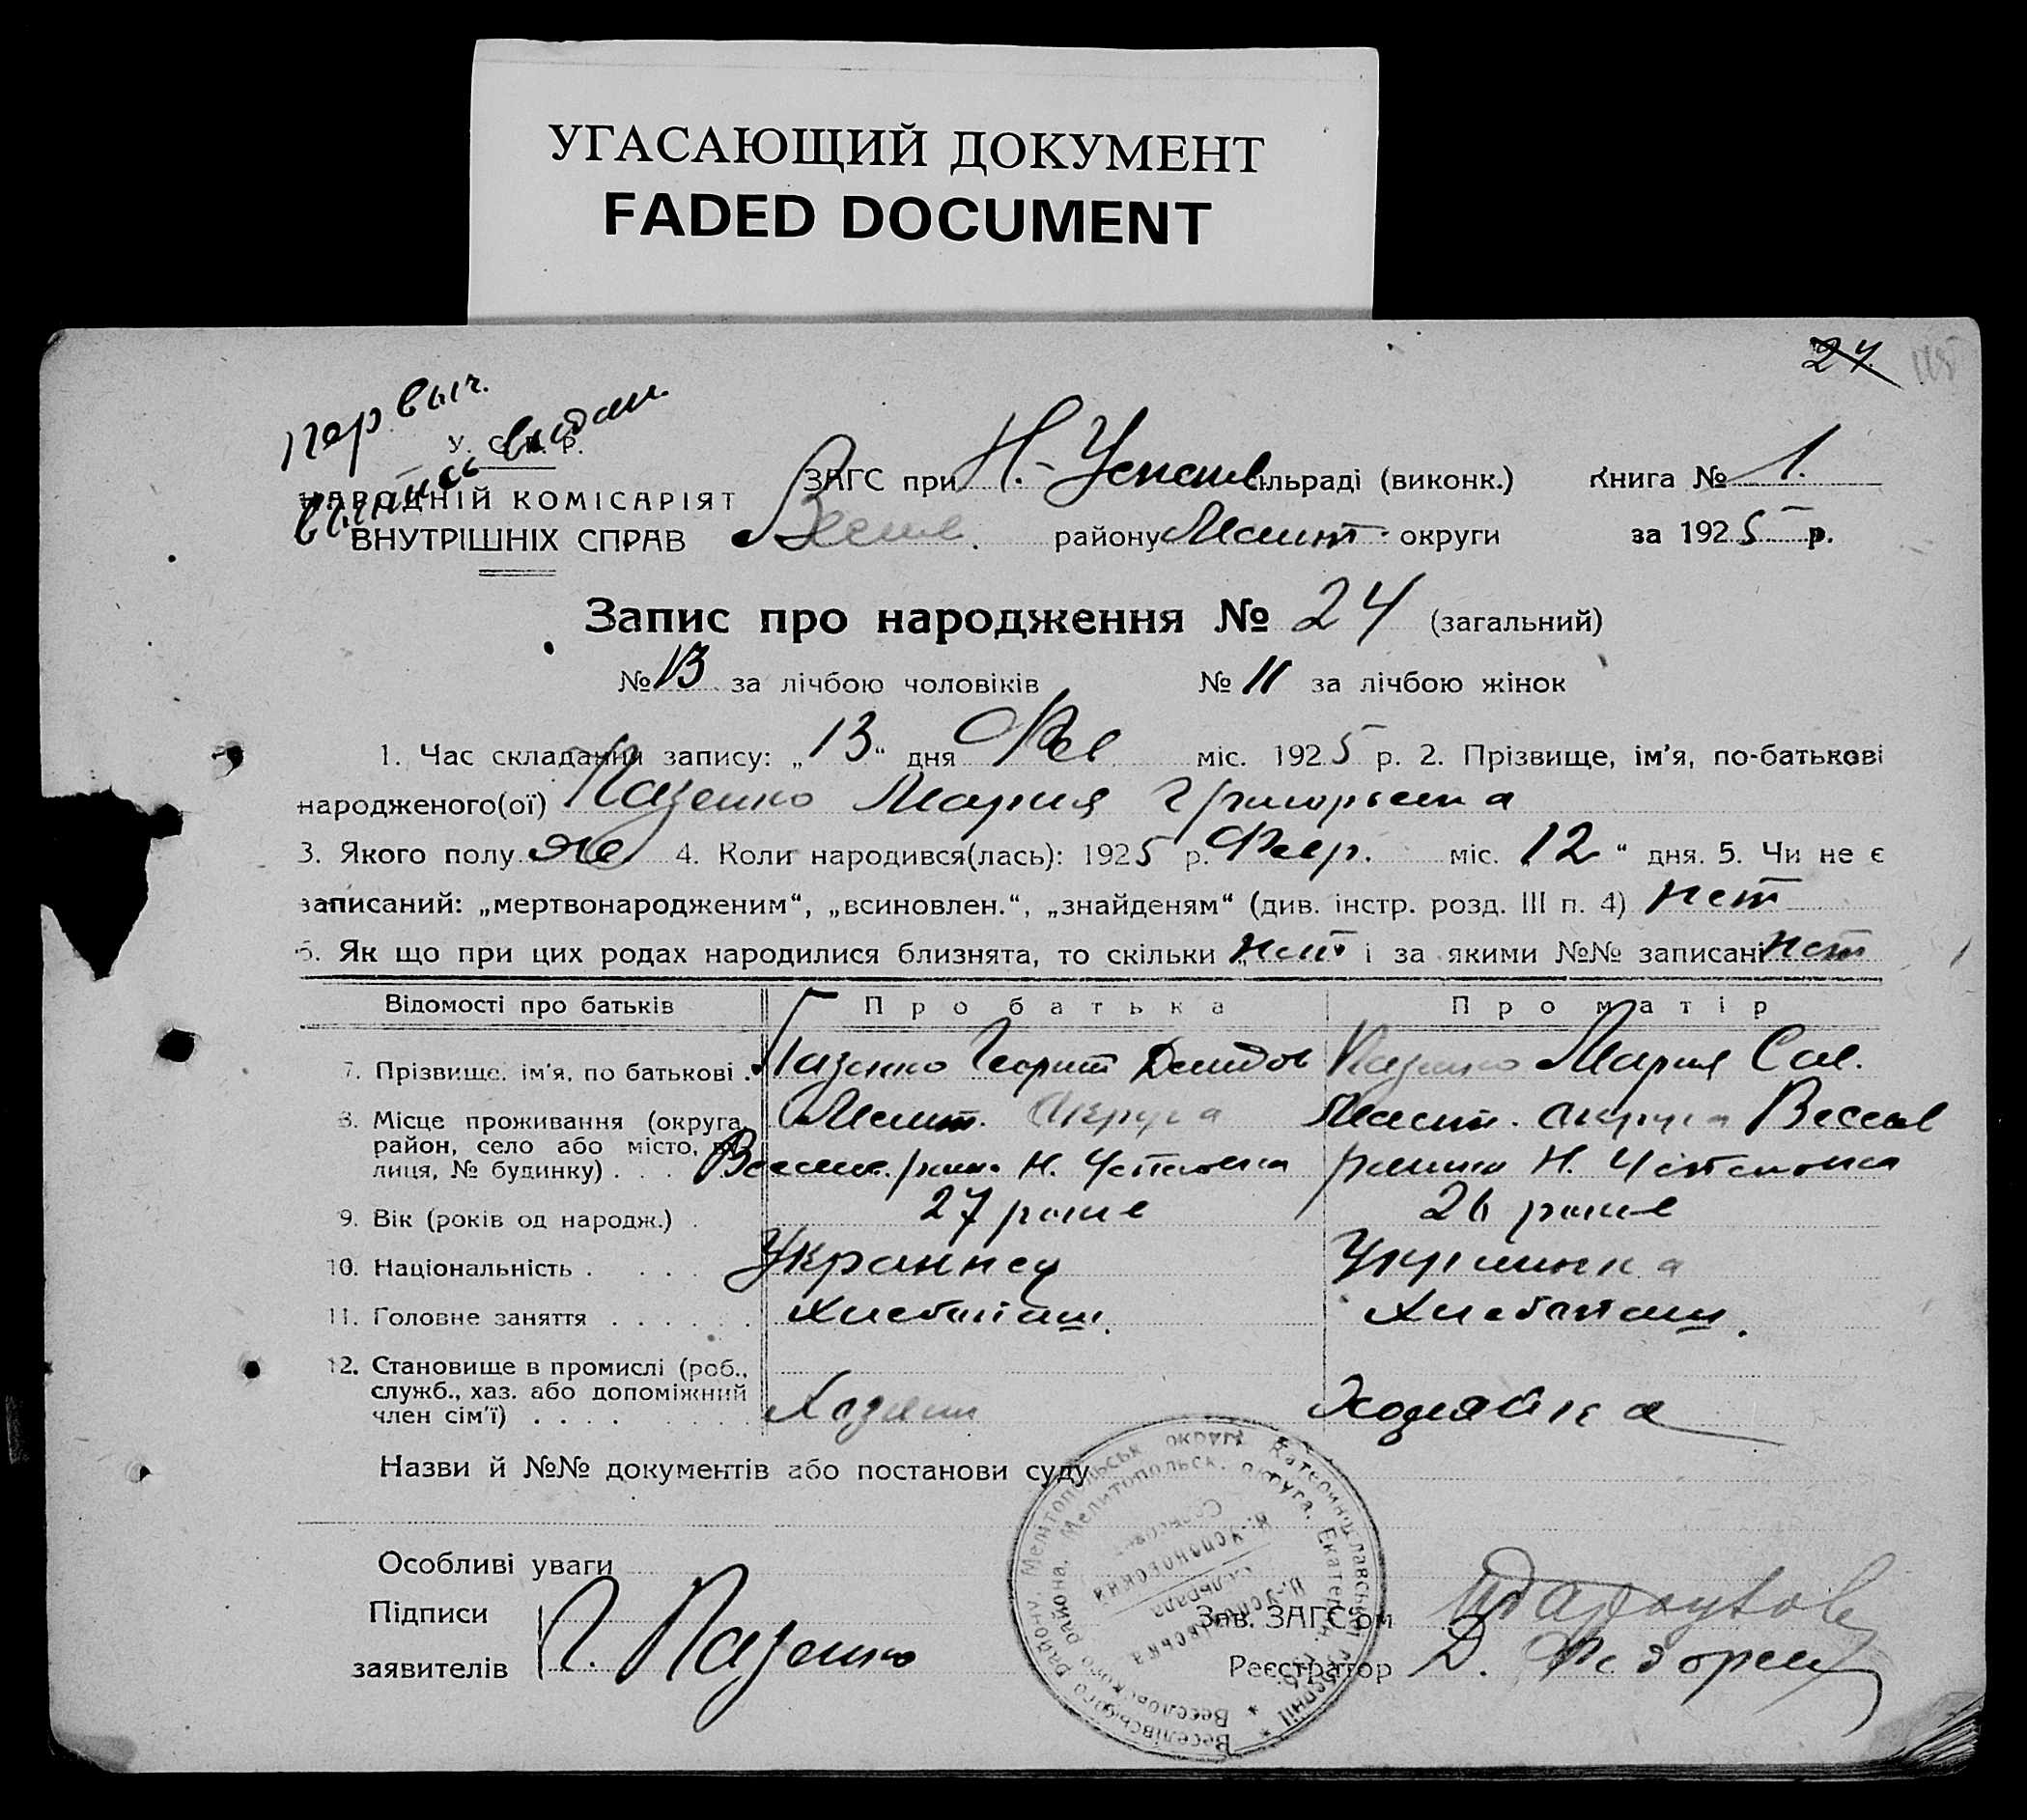 УГАСАЮЩИЙ ДОКУМЕНТ
FADED DOCUMENT
24
первич.
видан.
У. С. Р. Р.
НАРОДНІЙ КОМІСАРІЯТ
ВНУТРІШНІХ СПРАВ
ЗАГС при Н.-Успен сільраді (виконк.) Книга № 1.
Весел. району Мелит. округи за 1925 р.
Запис про народження № 24 (загальний)
№ 13 за лічбою чоловіків № 11 за лічбою жінок
1. Час складання запису: „13“ дня Фев міс. 1925 р. 2. Прізвище, ім'я, по-батькові
народженого(ої) Пазенко Мария Григорьевна
3. Якого полу же 4. Коли народився(лась): 1925 р. Февр. міс. „12“ дня. 5. Чи не є
записаний: „мертвонародженим“, „всиновлен.“, „знайденям“ (див. інстр. розд. III п. 4) нет
6. Як що при цих родах народилися близнята, то скільки нет і за якими №№ записані нет
Відомості про батьків Про батька Про матір
7. Прізвище, ім'я, по батькові . Пазенко Демидов Пазенко Мария Сам.
8. Місце проживання (округа, район, село або місто, вулиця, № будинку) . . . Мелит. округа Мелит. округа Весел
Весели. раи. Н. Успеновка Н. Успеновка
9. Вік (років од народж.) . 27 26
10. Національність . . . . Украинец Украинка
11. Головне заняття . . . . . . Хлебопаш. Хлебопаш.
12. Становище в промислі (роб., служб., хаз. або допоміжний член сім'ї) . . . . Хозяин Хозяйка
Назви й №№ документів або постанови суду
Особливі уваги
Підписи
заявителів Г. Пазенко
Зав. ЗАГС'ом
Реєстратор Д.
Веселівського району, Мелітопольськ округи Катеринославської губернії
Веселовского района, Мелитопольск. округа, Екатерин. губ.
Н.-Успенівська
Сільрада
Н.-Успеновский